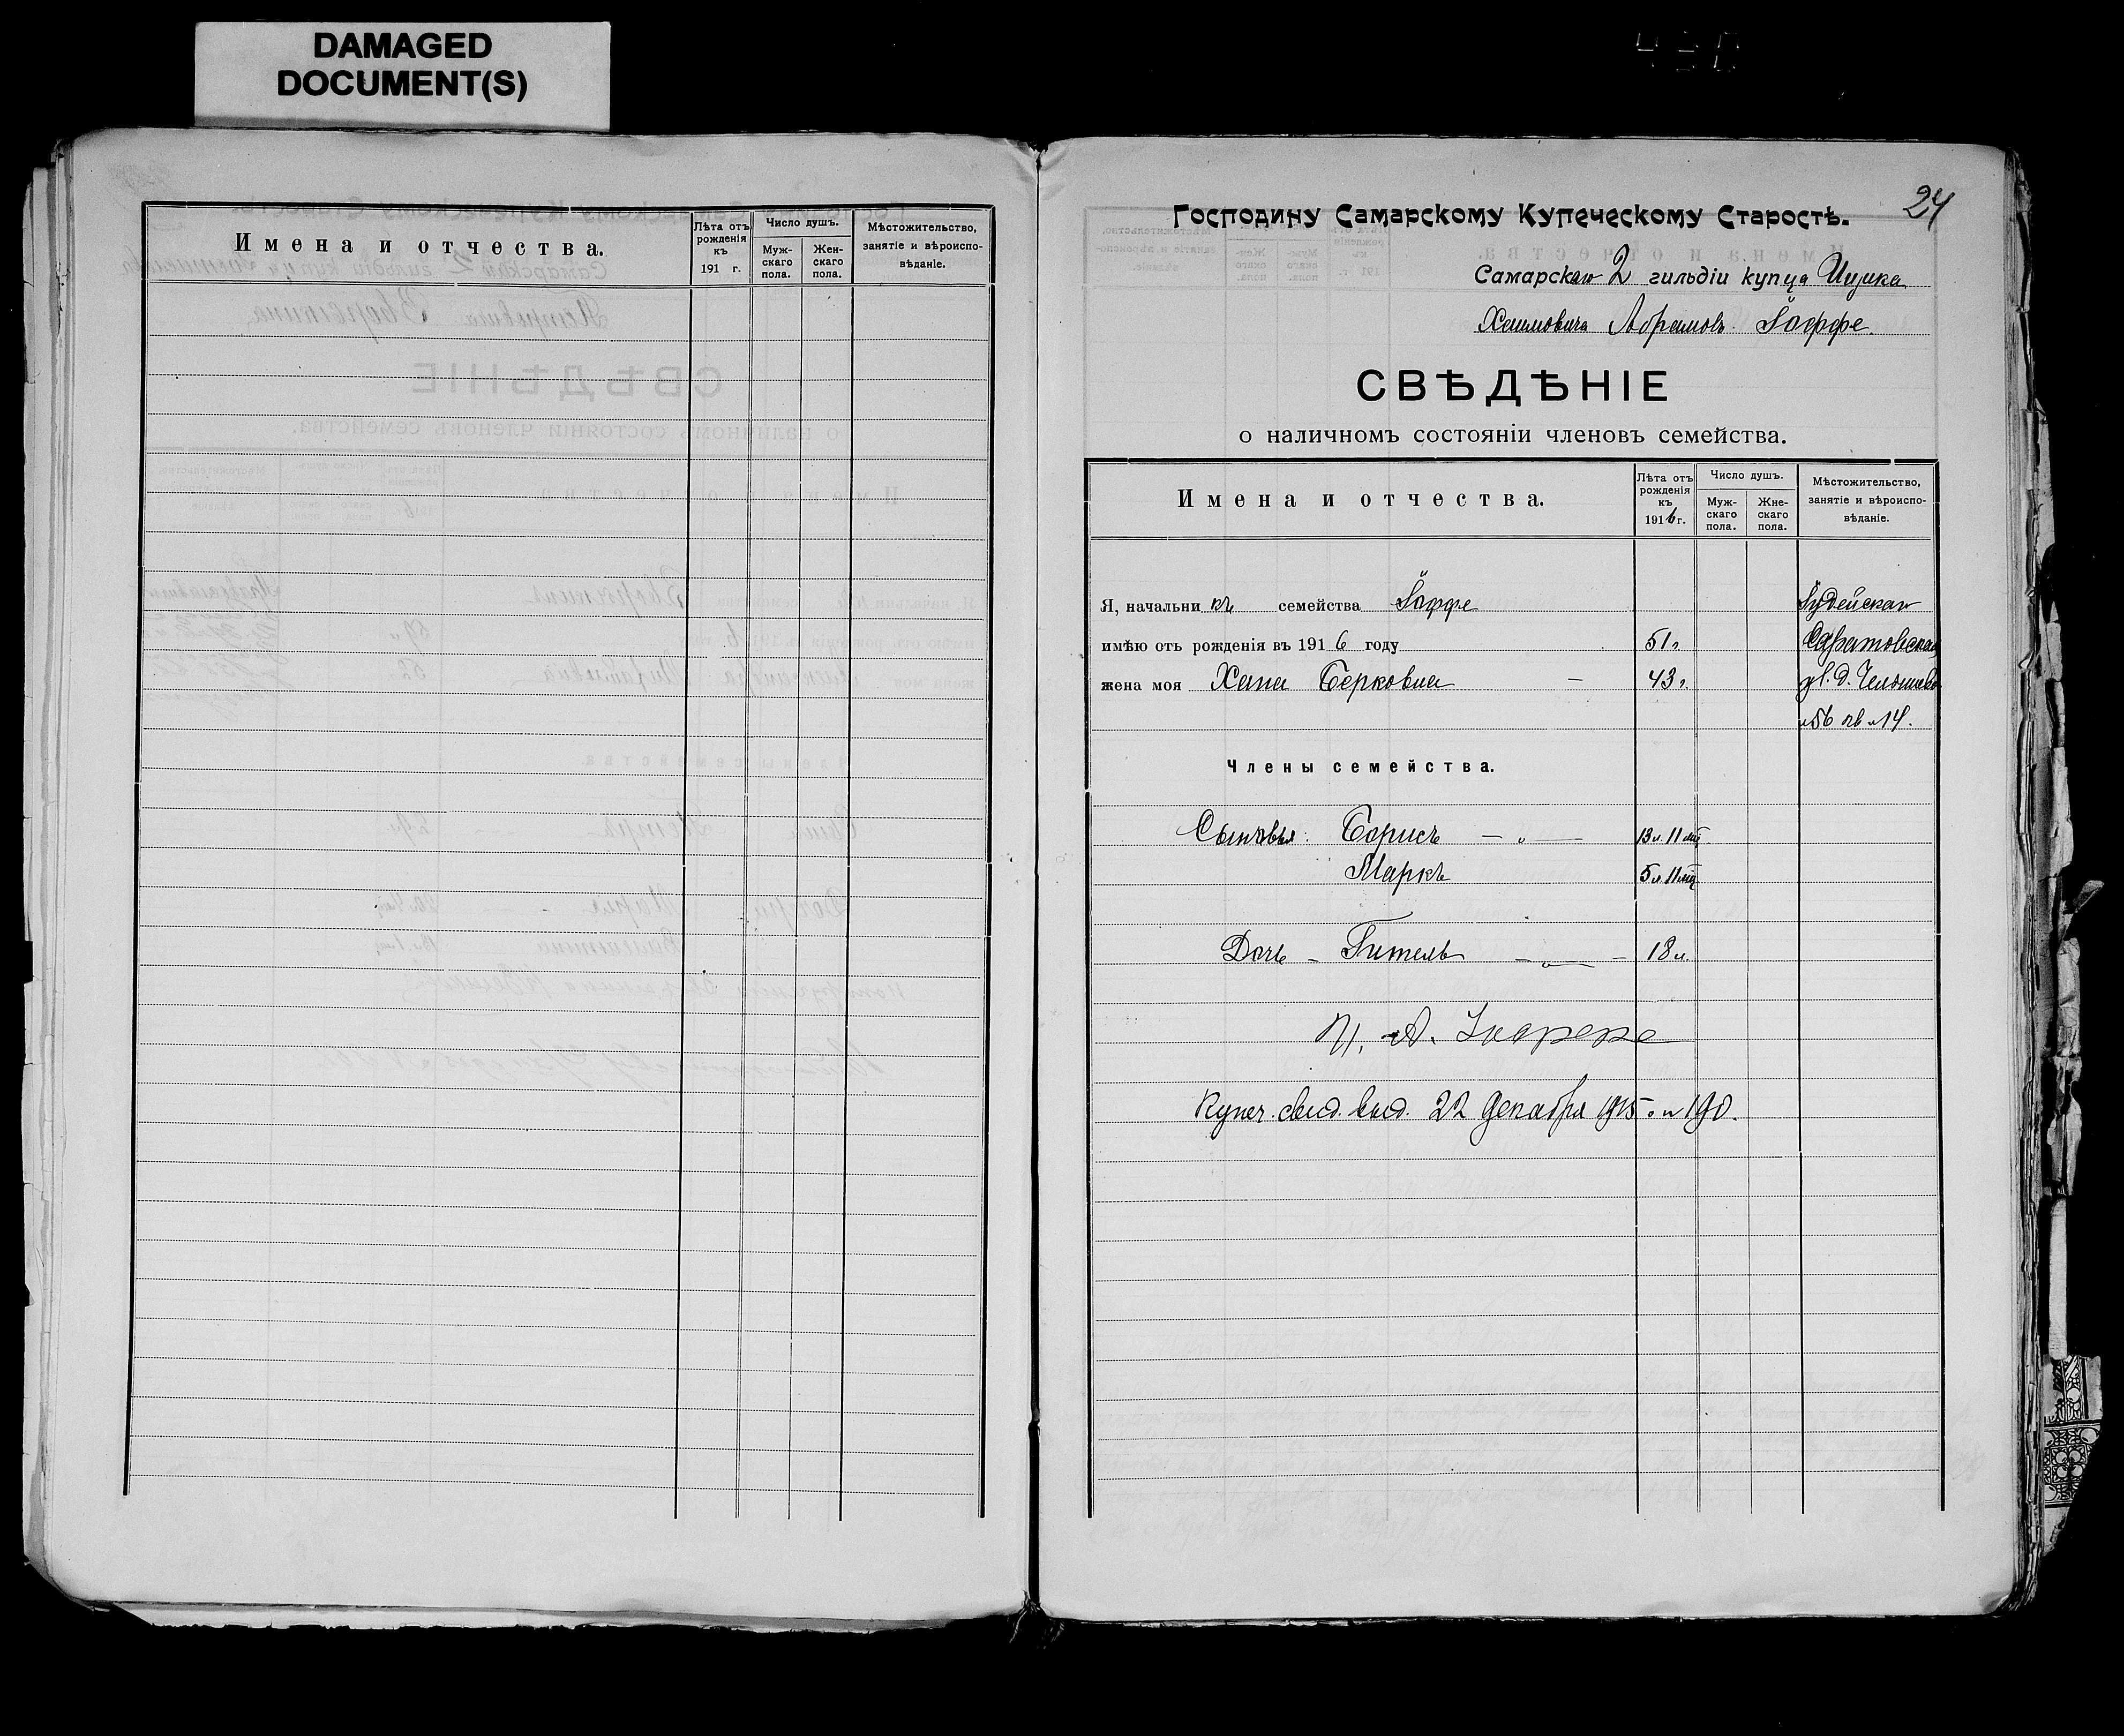 DAMAGED
DOCUMENT(S)
Имена и отчества.
Лѣта отъ
рожденія
къ
191 г.
Число душъ.
Муж-
скаго
пола.
Жен-
скаго
пола.
Мѣстожительство,
занятіе и вѣроиспо-
вѣданіе.
24
Господину Самарскому Купеческому Старостѣ.
Самарскаго 2 гильдіи купца Ицика
Хаимовича Абрамов. Іоффе.
СВѢДѢНІЕ
о наличномъ состояніи членовъ семейства.
Имена и отчества.
Лѣта отъ
рожденія
къ
1916 г.
Число душъ.
Муж-
скаго
пола.
Жне-
скаго
пола.
Мѣстожительство,
занятіе и вѣроиспо-
вѣданіе.
Я, начальникъ семейства Іоффе Іудейскаго
имѣю отъ рожденія въ 1916 году 51 г. Саратовская
жена моя Хана Берковна — 43 г. ул. д. Челышева
№ 56 кв № 14.
Члены семейства.
Сыновья: Борисъ — „ — 13 л. 11 мц.
Маркъ 5 л 11 мц
Дочь — Гитель — „ — 18 л.
И. А. Іоффе
Купеч. свид. выд. 22 декабря 1915 г № 190.